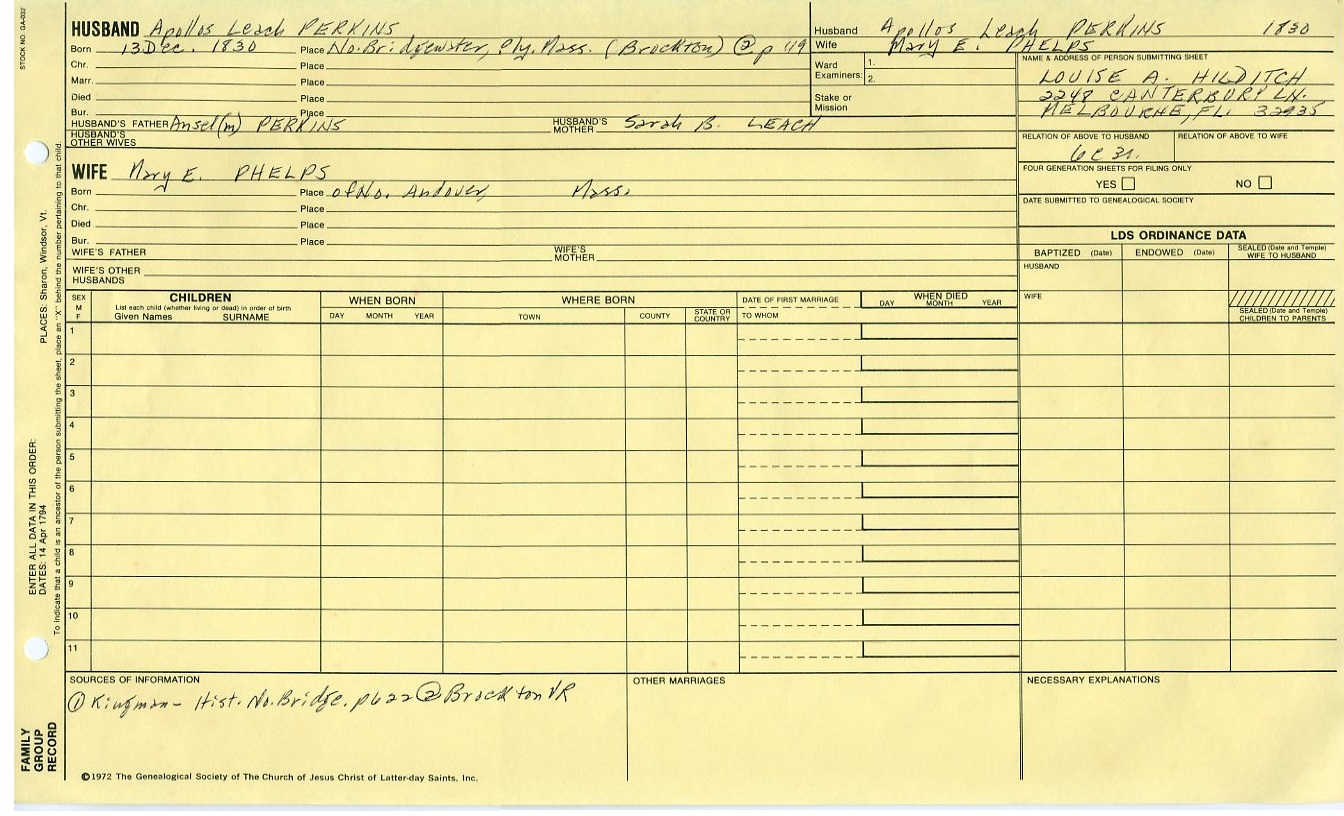 STOCK NO. GA-032
HUSBAND Apollos Leach PERKINS
Born 13 Dec. 1830 Place No. Bridgewater, Ply. Mass. (Brockton) ② p 119
Chr. Place
Marr. Place
Died Place
Bur. Place
HUSBAND'S FATHER Ansel(m) PERKINS HUSBAND'S MOTHER Sarah B. LEACH
HUSBAND'S OTHER WIVES
WIFE Mary E. PHELPS
Born Place of No. Andover, Mass.
Chr. Place
Died Place
Bur. Place
WIFE'S FATHER WIFE'S MOTHER
WIFE'S OTHER HUSBANDS
Husband Apollos Leach PERKINS 1830
Wife Mary E. PHELPS
Ward Examiners: 1.
2.
Stake or Mission
NAME & ADDRESS OF PERSON SUBMITTING SHEET
LOUISE A. HILDITCH
2248 CANTERBURY LN.
MELBOURNE, FL. 32935
RELATION OF ABOVE TO HUSBAND RELATION OF ABOVE TO WIFE
6C 3r.
FOUR GENERATION SHEETS FOR FILING ONLY
YES NO
DATE SUBMITTED TO GENEALOGICAL SOCIETY
LDS ORDINANCE DATA
BAPTIZED (Date) ENDOWED (Date) SEALED (Date and Temple) WIFE TO HUSBAND
HUSBAND
WIFE
SEALED (Date and Temple) CHILDREN TO PARENTS
SEX M F
CHILDREN
List each child (whether living or dead) in order of birth
Given Names SURNAME
WHEN BORN
DAY MONTH YEAR
WHERE BORN
TOWN COUNTY STATE OR COUNTRY
DATE OF FIRST MARRIAGE
TO WHOM
WHEN DIED
DAY MONTH YEAR
1
2
3
4
5
6
7
8
9
10
11
SOURCES OF INFORMATION
① Kingman - Hist. No. Bridge. p622 ② Brockton VR
OTHER MARRIAGES
NECESSARY EXPLANATIONS
©1972 The Genealogical Society of The Church of Jesus Christ of Latter-day Saints, Inc.
FAMILY GROUP RECORD
ENTER ALL DATA IN THIS ORDER:
DATES: 14 Apr 1794
PLACES: Sharon, Windsor, Vt.
To indicate that a child is an ancestor of the person submitting the sheet, place an "X" behind the number pertaining to that child.